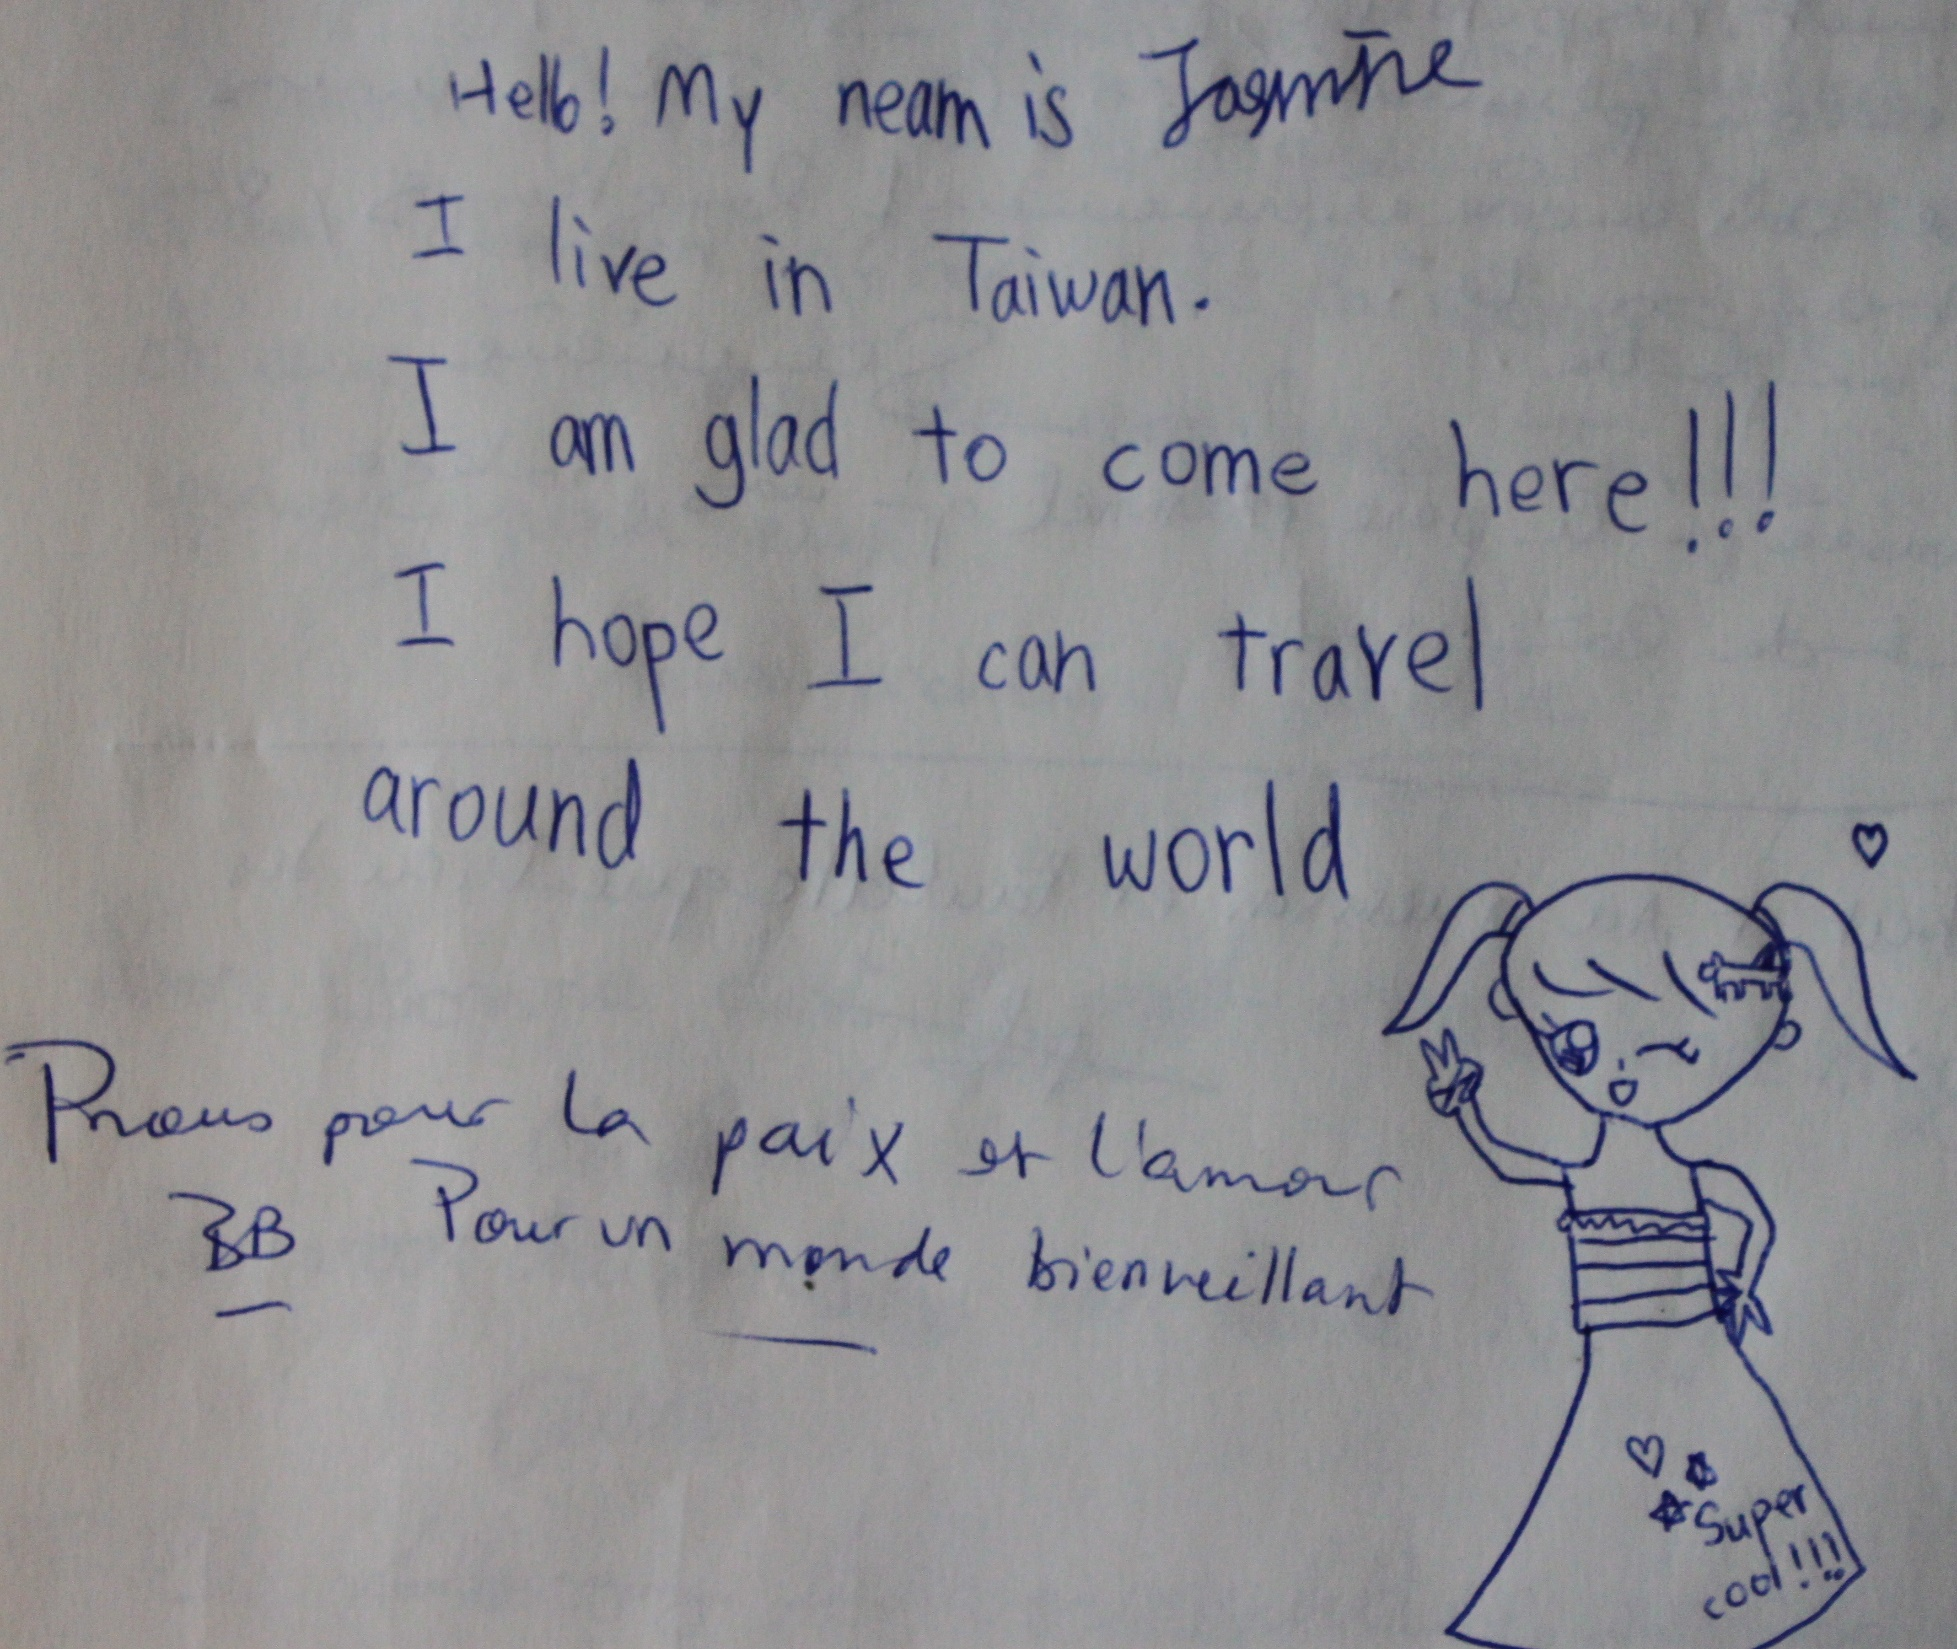 Hello! My neam is Jasmine
I live in Taiwan.
I am glad to come here!!!
I hope I can travel
around the world
Prions pour la paix et l'amour
BB Pour un monde bienveillant
Super
cool!!!